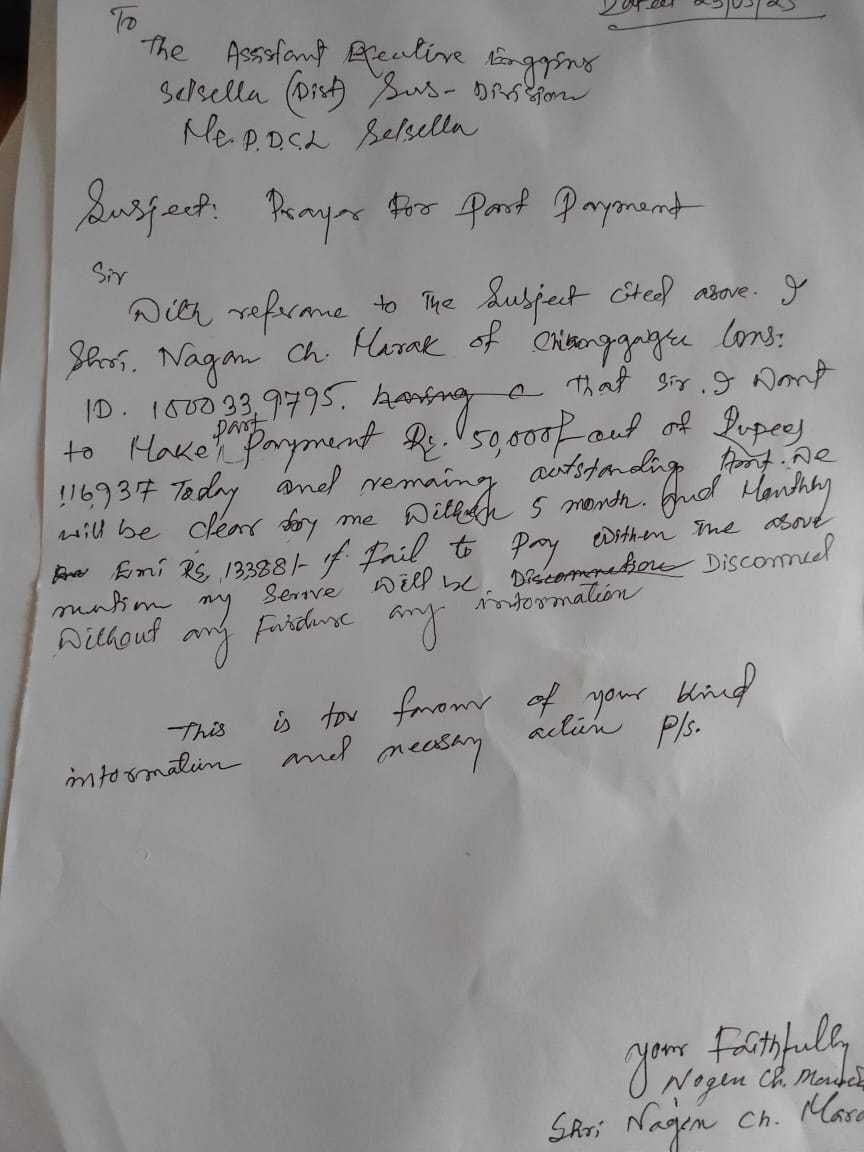 To
Dated 25/03/25
The Assstant Exeutive Enggins
Selsella (Dist) Sus- Division
Me. P.D.C.L Selsella
Susject: Prayer For Part Payment
Sir
With referane to The Subject cited asove. I
Shri. Nagan Ch. Marak of Cons:
ID. 1000339795. having a That Sir, I Want
to Make part Payment Rs. 50,000/- out of Rupees
116937 Today and remaing outstanding Amt. We
will be clear by me Within 5 month. And Monthly
Emi Rs, 13388/- if Fail to Pay Within The asove
mention my Serive Will be Disconnection Disconnect
Without any Furdure any information
This is for favour of your kind
information and necessay action P/s.
your Faithfully
Nogen Ch. Marak
Shri Nagen Ch. Mara